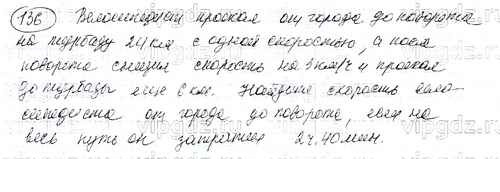 136 Велосипедист проехал от города до поворота
на турбазу 24 км с одной скоростью, а после
поворота снизил скорость на 3 км/ч и проехал
до турбазы еще 6 км. Найдите скорость вело-
сипедиста от города до поворота, если на
весь путь он затратил 2ч. 40мин.